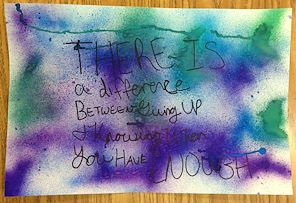 THERE IS
a difference
BETWEEN Giving UP
& Knowing When
You HAVE ENOUGH